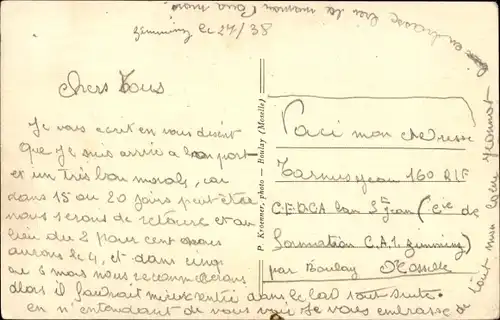 embrasse bien la maman Para mon
Zimming le 27/38
Chers Tous
Je vais écrit en vous disent
que je suis arrivé a bon port
et un très bon moral, car
dans 15 ou 20 jours peut être
nous serons de retour et au
lieu du 2 pour cent nous
aurons le 4, et dans cinq
ou 6 mois nous recommencerons
Alors il faudrait mieux entré dans le tout suite.
en n'entendant de vous voir Je vous embrasse de
tout mon coeur Jeannot
P. Kroenner, photo — Boulay (Moselle)
Voici mon adresse
Jean 160 RIF
C.E.D.C.A ban St Jean (Cie de
formation C.A.1. Zimming)
par Boulay Moselle